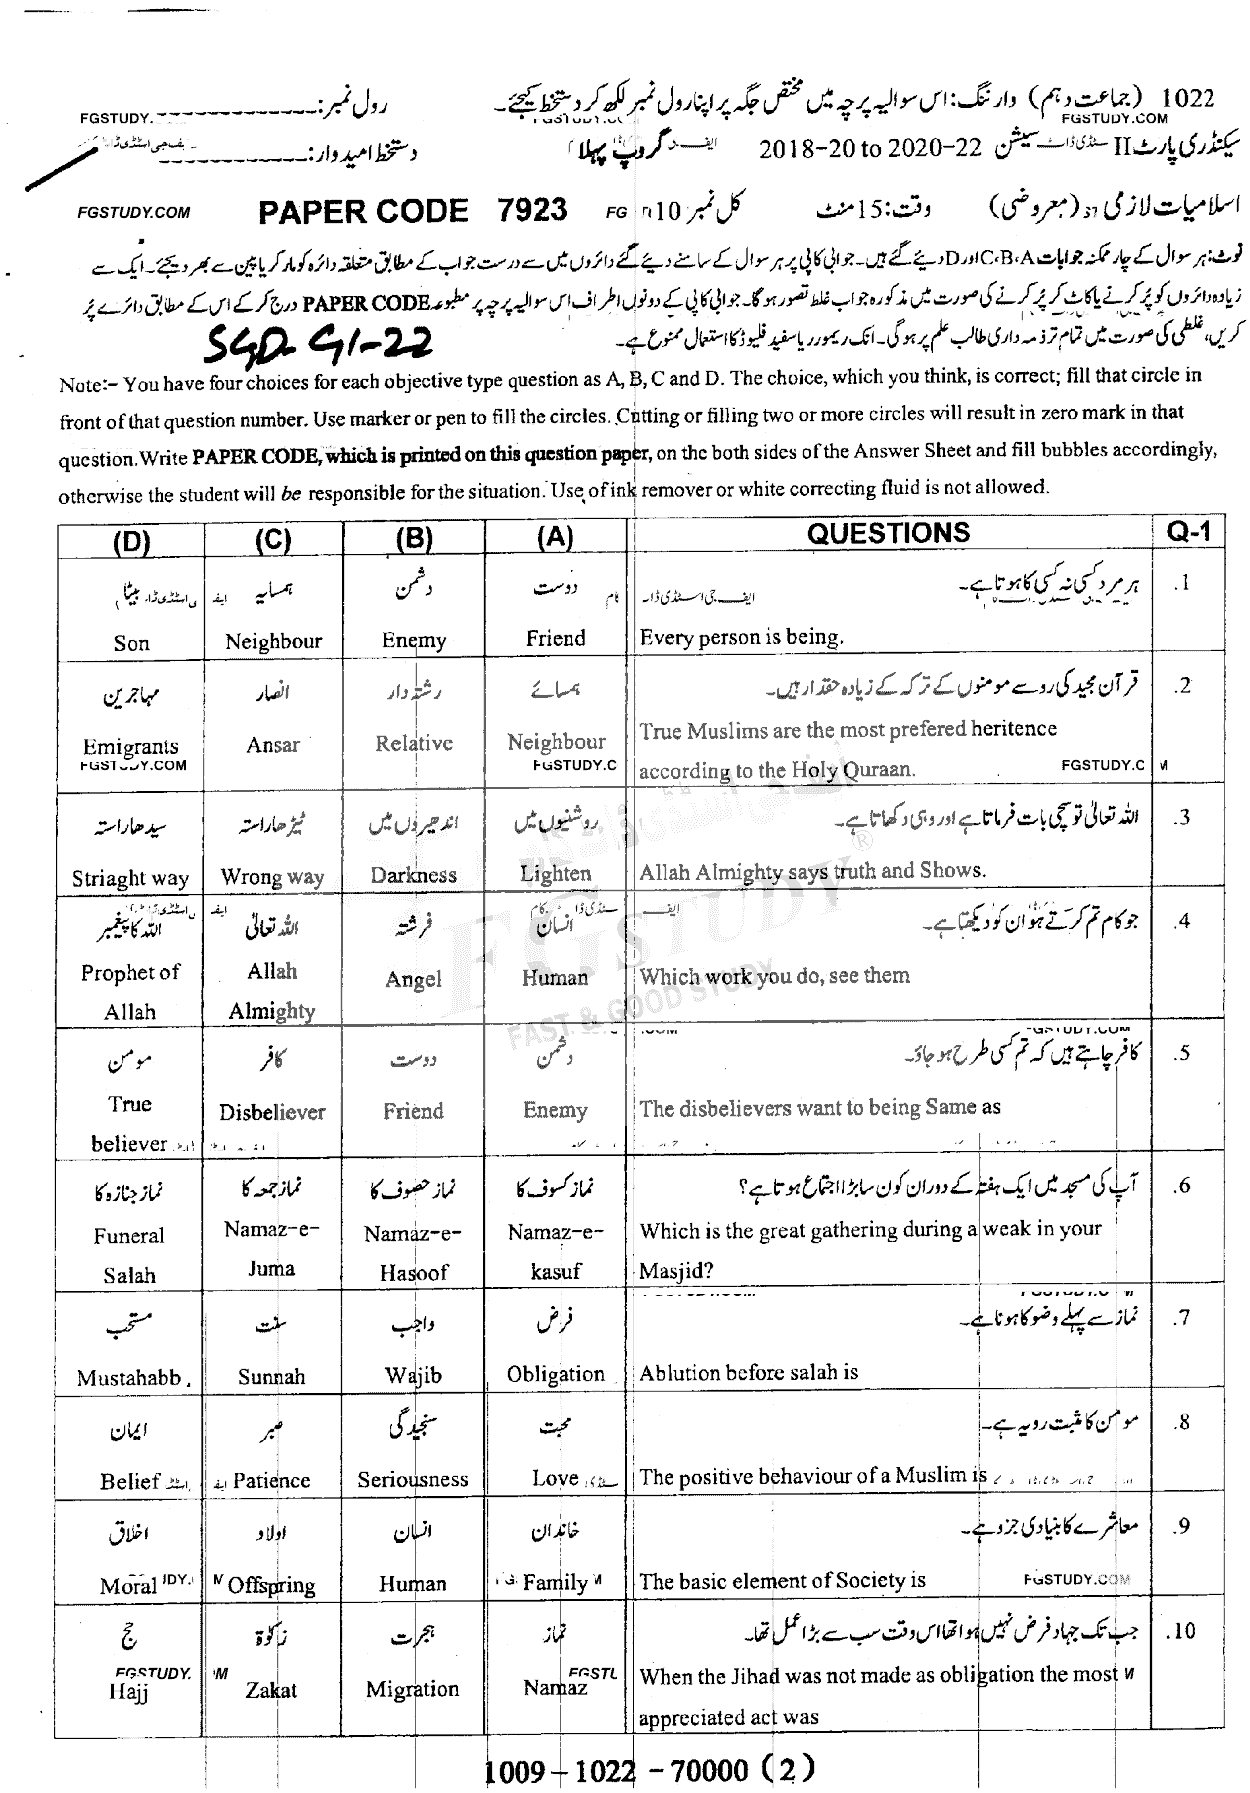 1022 (جماعت دہم) وارننگ: اس سوالیہ پرچہ میں مختص جگہ پر اپنا رول نمبر لکھ کر دستخط کیجئے۔ رول نمبر:
FGSTUDY. FGSTUDY.COM
سیکنڈری پارٹ II سیشن 2018-20 to 2020-22 گروپ پہلا دستخط امیدوار:
اسلامیات لازمی (معروضی) وقت: 15 منٹ کل نمبر 10 PAPER CODE 7923 FGSTUDY.COM
نوٹ: ہر سوال کے چار ممکنہ جوابات C،B،A اور D دیئے گئے ہیں۔ جوابی کاپی پر ہر سوال کے سامنے دیئے گئے دائروں میں سے درست جواب کے مطابق متعلقہ دائرہ کو مارکر یا پین سے بھر دیجئے۔ ایک سے
زیادہ دائروں کو پُر کرنے یا کاٹ کر پُر کرنے کی صورت میں مذکورہ جواب غلط تصور ہوگا۔ جوابی کاپی کے دونوں اطراف اس سوالیہ پرچہ پر مطبوعہ PAPER CODE درج کر کے اس کے مطابق دائرے پُر
کریں، غلطی کی صورت میں تمام تر ذمہ داری طالب علم پر ہوگی۔ انک ریمور یا سفید فلیوڈ کا استعمال ممنوع ہے۔
SGD-G1-22
Note:- You have four choices for each objective type question as A, B, C and D. The choice, which you think, is correct; fill that circle in
front of that question number. Use marker or pen to fill the circles. Cutting or filling two or more circles will result in zero mark in that
question. Write PAPER CODE, which is printed on this question paper, on the both sides of the Answer Sheet and fill bubbles accordingly,
otherwise the student will be responsible for the situation. Use of ink remover or white correcting fluid is not allowed.
(D) (C) (B) (A) QUESTIONS Q-1
بیٹا ہمسایہ دشمن دوست ہر مرد کسی نہ کسی کا ہوتا ہے۔ .1
Son Neighbour Enemy Friend Every person is being.
مہاجرین انصار رشتہ دار ہمسائے قرآن مجید کی رو سے مومنوں کے ترکہ کے زیادہ حقدار ہیں۔ .2
Emigrants Ansar Relative Neighbour True Muslims are the most prefered heritence
according to the Holy Quraan.
سیدھا راستہ ٹیڑھا راستہ اندھیروں میں روشنیوں میں اللہ تعالیٰ تو سچی بات فرماتا ہے اور وہی دکھاتا ہے۔ .3
Striaght way Wrong way Darkness Lighten Allah Almighty says truth and Shows.
اللہ کا پیغمبر اللہ تعالیٰ فرشتہ انسان جو کام تم کرتے ہو ان کو دیکھتا ہے۔ .4
Prophet of Allah Angel Human Which work you do, see them
Allah Almighty
مومن کافر دوست دشمن کافر چاہتے ہیں کہ تم کسی طرح ہو جاؤ۔ .5
True Disbeliever Friend Enemy The disbelievers want to being Same as
believer
نماز جنازہ کا نماز جمعہ کا نماز خصوف کا نماز کسوف کا آپ کی مسجد میں ایک ہفتے کے دوران کون سا بڑا اجتماع ہوتا ہے؟ .6
Funeral Namaz-e- Namaz-e- Namaz-e- Which is the great gathering during a weak in your
Salah Juma Hasoof kasuf Masjid?
مستحب سنت واجب فرض نماز سے پہلے وضو کا ہونا ہے۔ .7
Mustahabb Sunnah Wajib Obligation Ablution before salah is
ایمان صبر سنجیدگی محبت مومن کا مثبت رویہ ہے۔ .8
Belief Patience Seriousness Love The positive behaviour of a Muslim is
اخلاق اولاد انسان خاندان معاشرے کا بنیادی جزو ہے۔ .9
Moral Offspring Human Family The basic element of Society is FGSTUDY.COM
حج زکوٰۃ ہجرت نماز جب تک جہاد فرض نہیں ہوا تھا اس وقت سب سے بڑا عمل تھا۔ .10
Hajj Zakat Migration Namaz When the Jihad was not made as obligation the most
appreciated act was
FGSTUDY
FAST & GOOD STUDY
1009-1022-70000 (2)